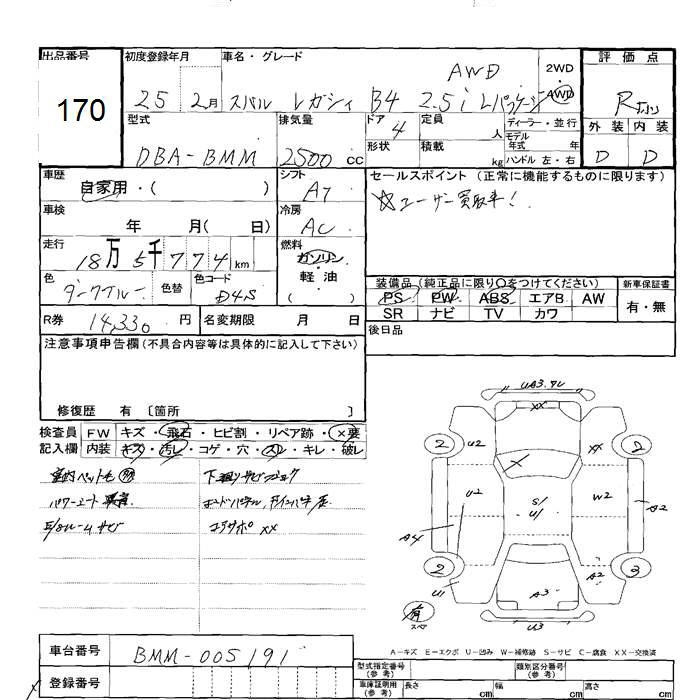 出品番号 初度登録年月 車名・グレード 評価点
170
25 2月 スバル レガシィ B4 2.5i Lパッケージ AWD
2WD・AWD
型式 排気量 ドア 定員 人 ディーラー・並行
DBA-BMM 2500 cc 4
形状 積載 kg モデル年式 年 ハンドル 左・右
外装 内装
D D
車歴 シフト セールスポイント (正常に機能するものに限ります)
自家用・( ) AT ☆ユーザー買取車!
車検 冷房
年 月( 日) AC
走行 燃料
18万5千774km ガソリン・軽油
( )
色 色替 色コード
ダークブルー D4S
装備品 (純正品に限り〇をつけてください) 新車保証書
PS PW ABS エアB AW 有・無
SR ナビ TV カワ
R券 14,330円 名変期限 月 日
後日品
注意事項申告欄(不具合内容等は具体的に記入して下さい)
修復歴 有 〔箇所 〕
検査員 FW キズ・飛石・ヒビ割・リペア跡・×要
記入欄 内装 キズ・汚レ・コゲ・穴・スレ・キレ・破レ
UA3.ワレ
XX
2 U2 XX 2
X
U2 S/ U/ W2
A4 A2
2 A2 2
U1 A3
有 スペ
U3
A-キズ E-エクボ U-凹み W-補修跡 S-サビ C-腐食 XX-交換済
車台番号 BMM-005191
登録番号
型式指定番号(参考) 類別区分番号(参考)
車庫証明用(参考) 長さ cm 幅 cm 高さ cm